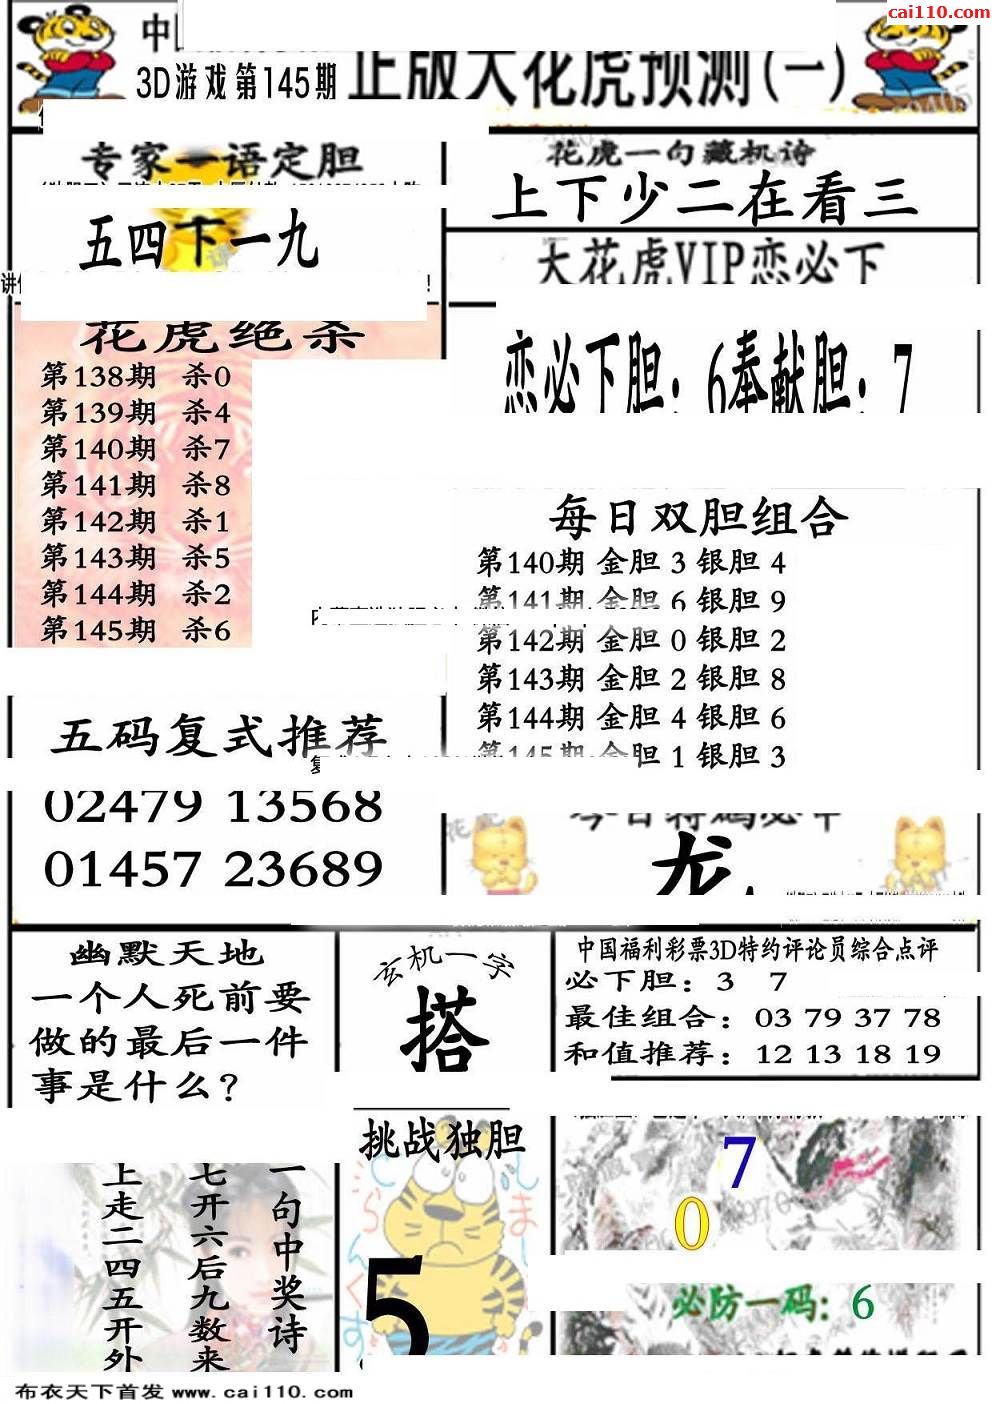 cai110.com
3D游戏第145期
正版大花虎预测(一)
专家一语定胆
五四下一九
花虎一句藏机诗
上下少二在看三
大花虎VIP恋必下
恋必下胆：6奉献胆：7
花虎绝杀
第138期 杀0
第139期 杀4
第140期 杀7
第141期 杀8
第142期 杀1
第143期 杀5
第144期 杀2
第145期 杀6
每日双胆组合
第140期 金胆 3 银胆 4
第141期 金胆 6 银胆 9
第142期 金胆 0 银胆 2
第143期 金胆 2 银胆 8
第144期 金胆 4 银胆 6
第145期 金胆 1 银胆 3
五码复式推荐
02479 13568
01457 23689
幽默天地
一个人死前要
做的最后一件
事是什么？
玄机一字
搭
中国福利彩票3D特约评论员综合点评
必下胆：3 7
最佳组合：03 79 37 78
和值推荐：12 13 18 19
一句中奖诗
七开六后九数来
上走二四五开外
挑战独胆
5
7
0
必防一码：6
布衣天下首发 www.cai110.com